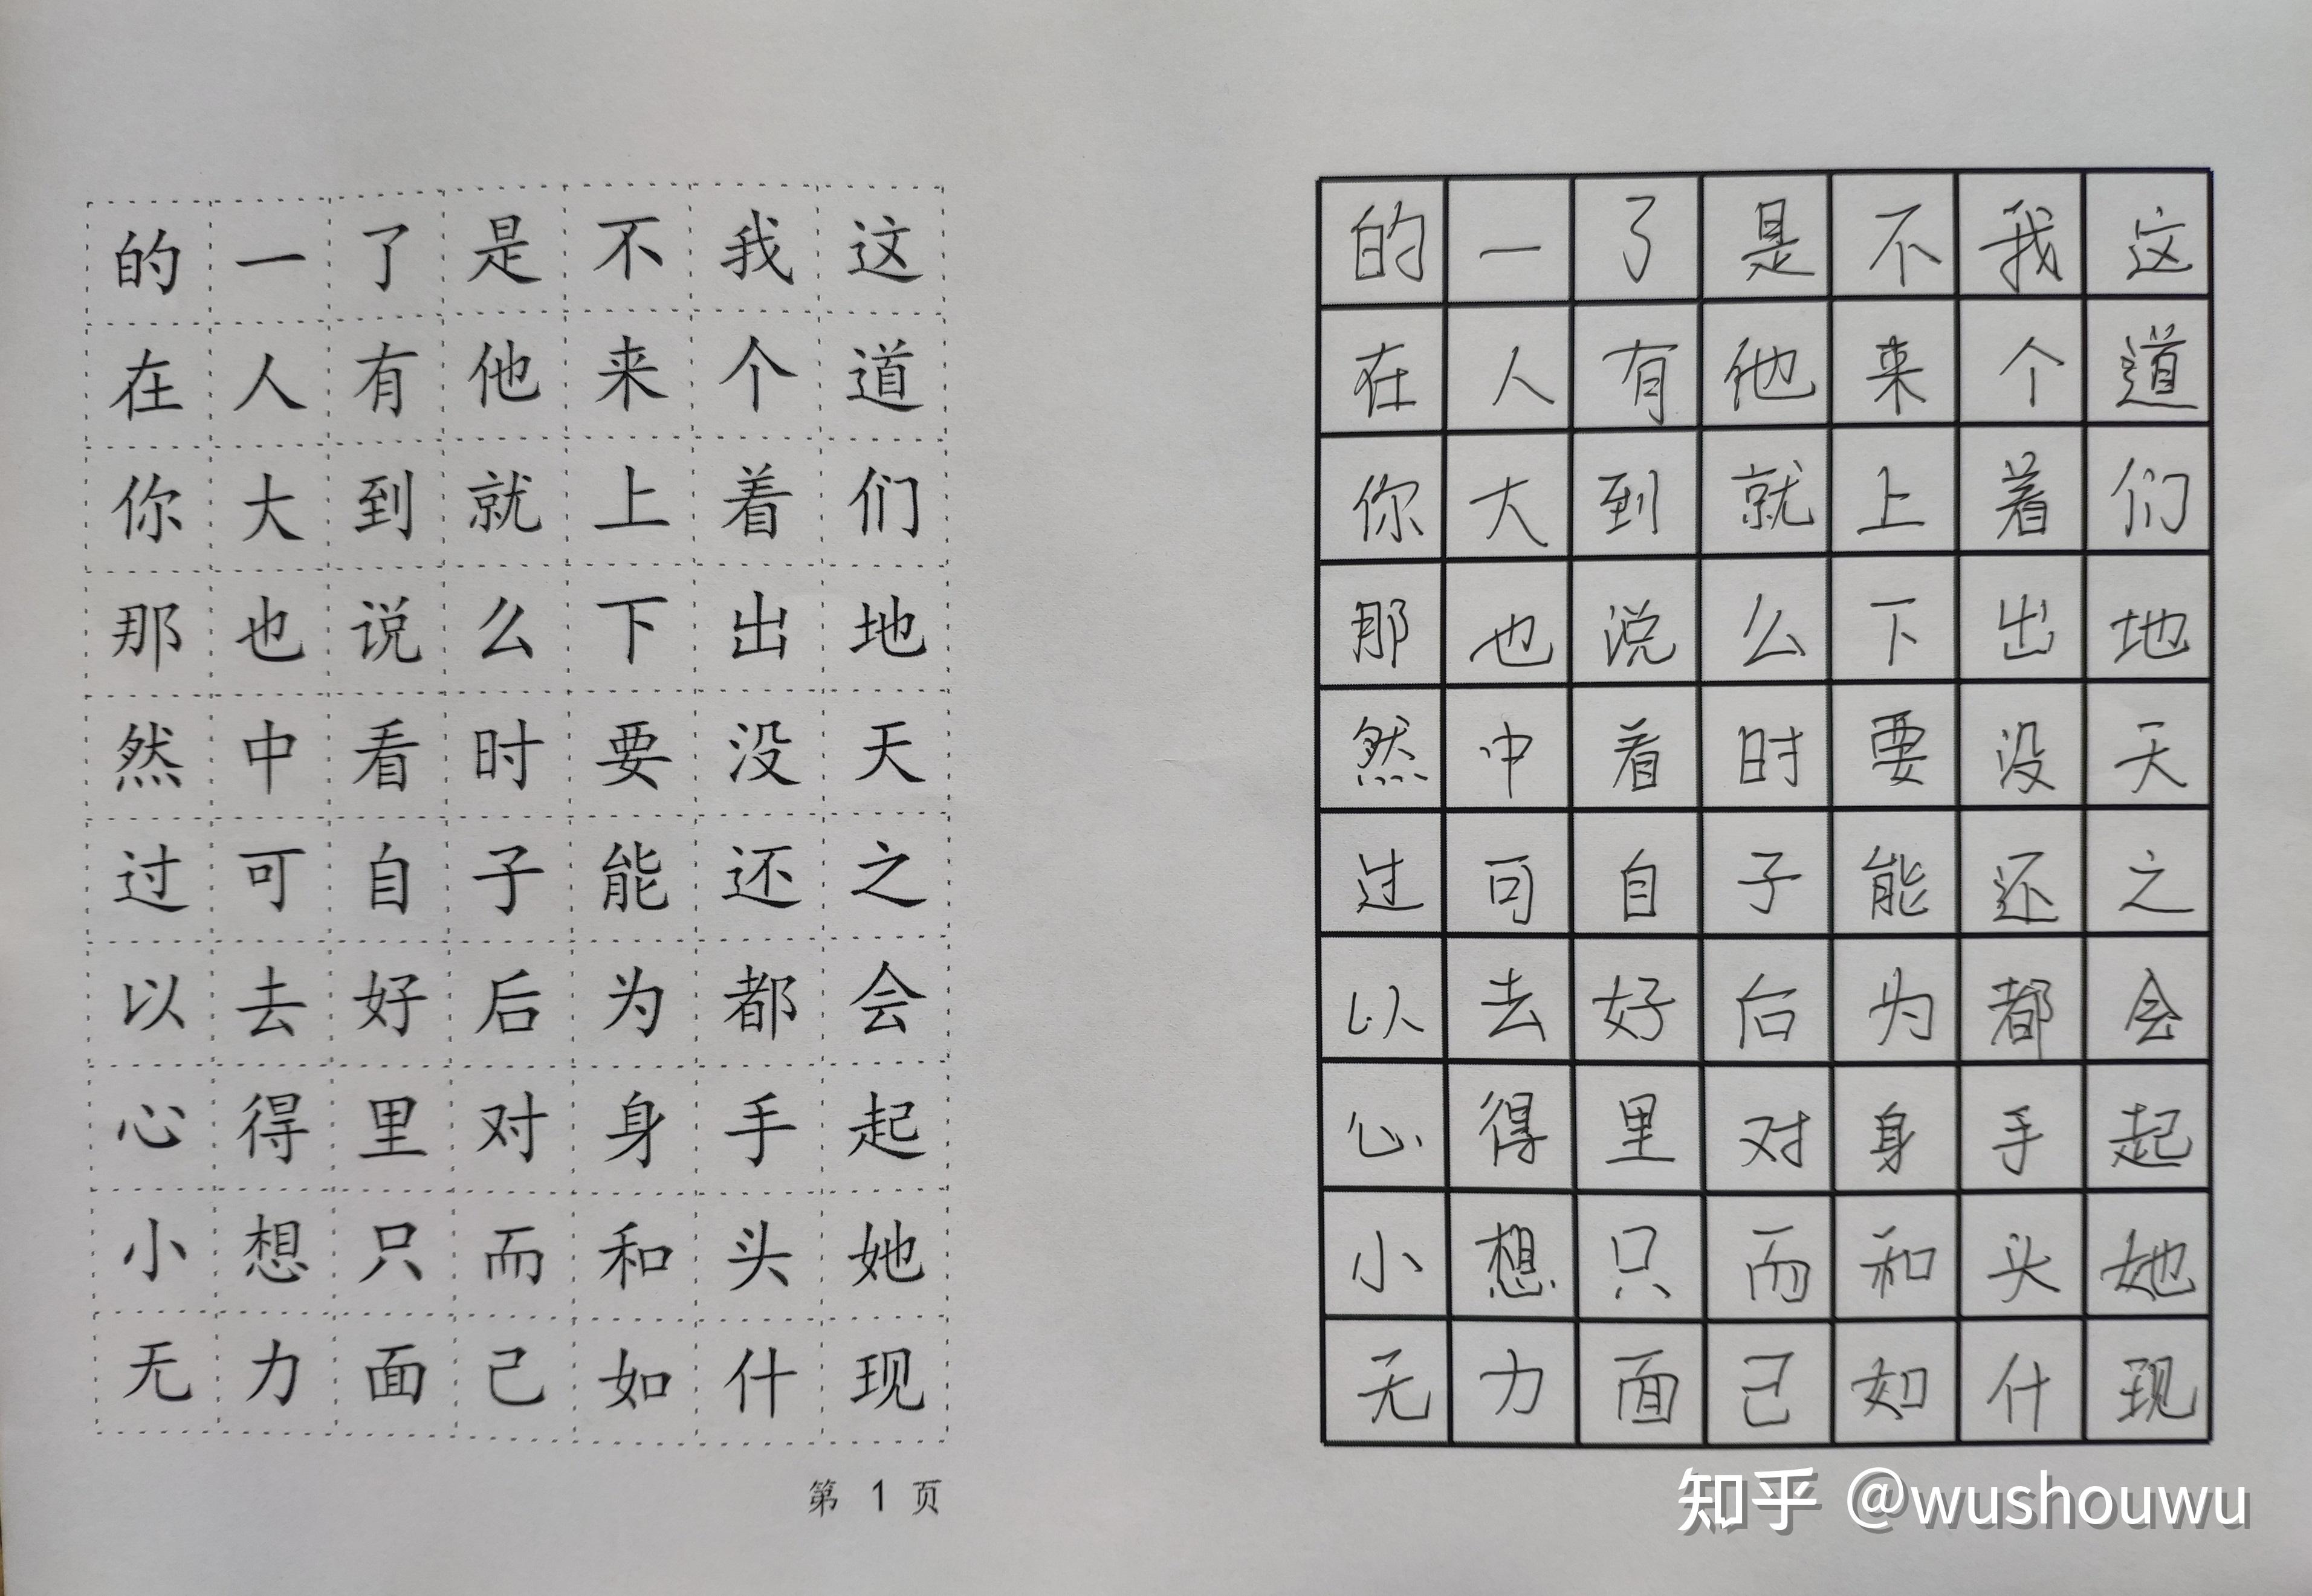 的一了是不我这
在人有他来个道
你大到就上着们
那也说么下出地
然中看时要没天
过可自子能还之
以去好后为都会
心得里对身手起
小想只而和头她
无力面己如什现
第 1 页
的一了是不我这
在人有他来个道
你大到就上着们
那也说么下出地
然中着时要没天
过可自子能还之
以去好后为都会
心得里对身手起
小想只而和头她
无力面己如什现
知乎 @wushouwu